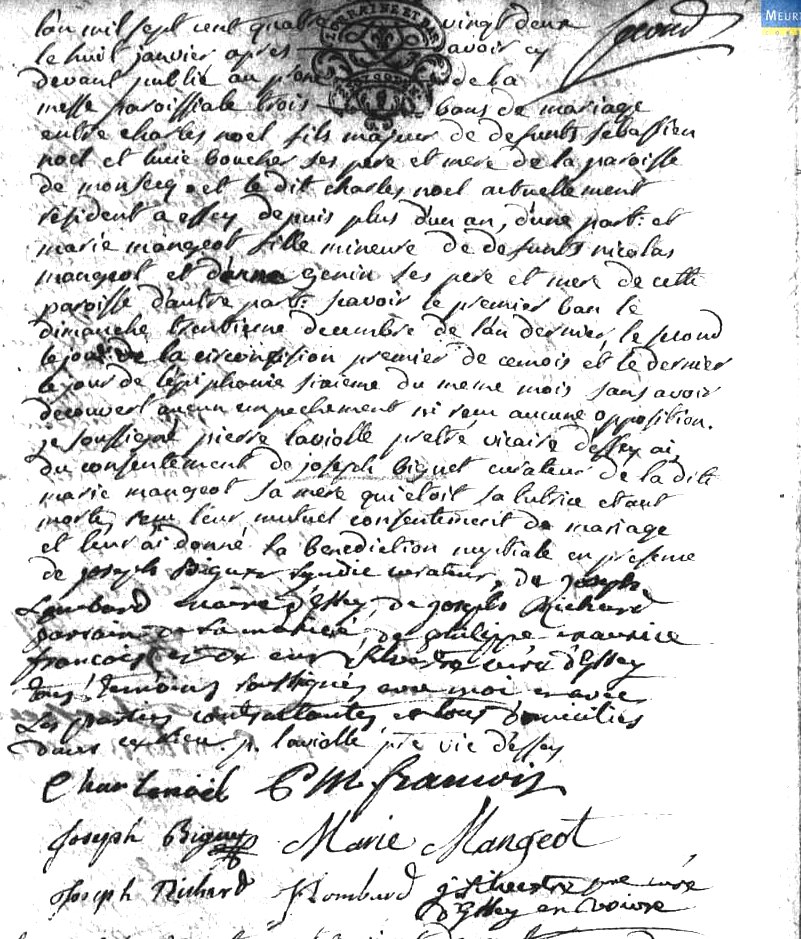 MEUR
l'an mil sept cent quatre vingt deux
le huit janvier apres avoir cy
devant publié au prone de la
messe paroissiale trois bans de mariage
entre charles noel fils majeur de defunts sebastien
noel et lucie boucher ses pere et mere de la paroisse
de monsecq et le dit charles noel actuellement
résident a essey depuis plus d'un an, d'une part: et
marie mangeot fille mineure de defunts nicolas
mangeot et d'anne genin ses pere et mere de cette
paroisse d'autre part: scavoir le premier ban le
dimanche trentieme decembre de l'an dernier, le second
le jour de la circoncision premier de ce mois et le dernier
le jour de l'epiphanie sixieme du meme mois sans avoir
decouvert aucun empechement ni reçu aucune opposition.
je soussigné pierre laviolle pretre vicaire d'essey ai,
du consentement de joseph Biguet curateur de la dite
marie mangeot sa mere qui etoit sa tutrice etant
morte, reçu leur mutuel consentement de mariage
et leur ai donné la benediction nuptiale en presence
de joseph Biguet syndic curateur, de joseph
Lombard maire d'Essey, de joseph Richard
parrain de la mariée, de philippe maurice
francois et de silvestre curé d'Essey
tous temoins soussignés avec moi et avec
Les parties contractantes, et tous domiciliés
dans ce lieu. p. laviolle ptre vic d'essey
Charle noël P M francois
Joseph Biguet Marie Mangeot
Joseph Richard J Lombard J Silvestre ptre curé
d'Essey en Voivre